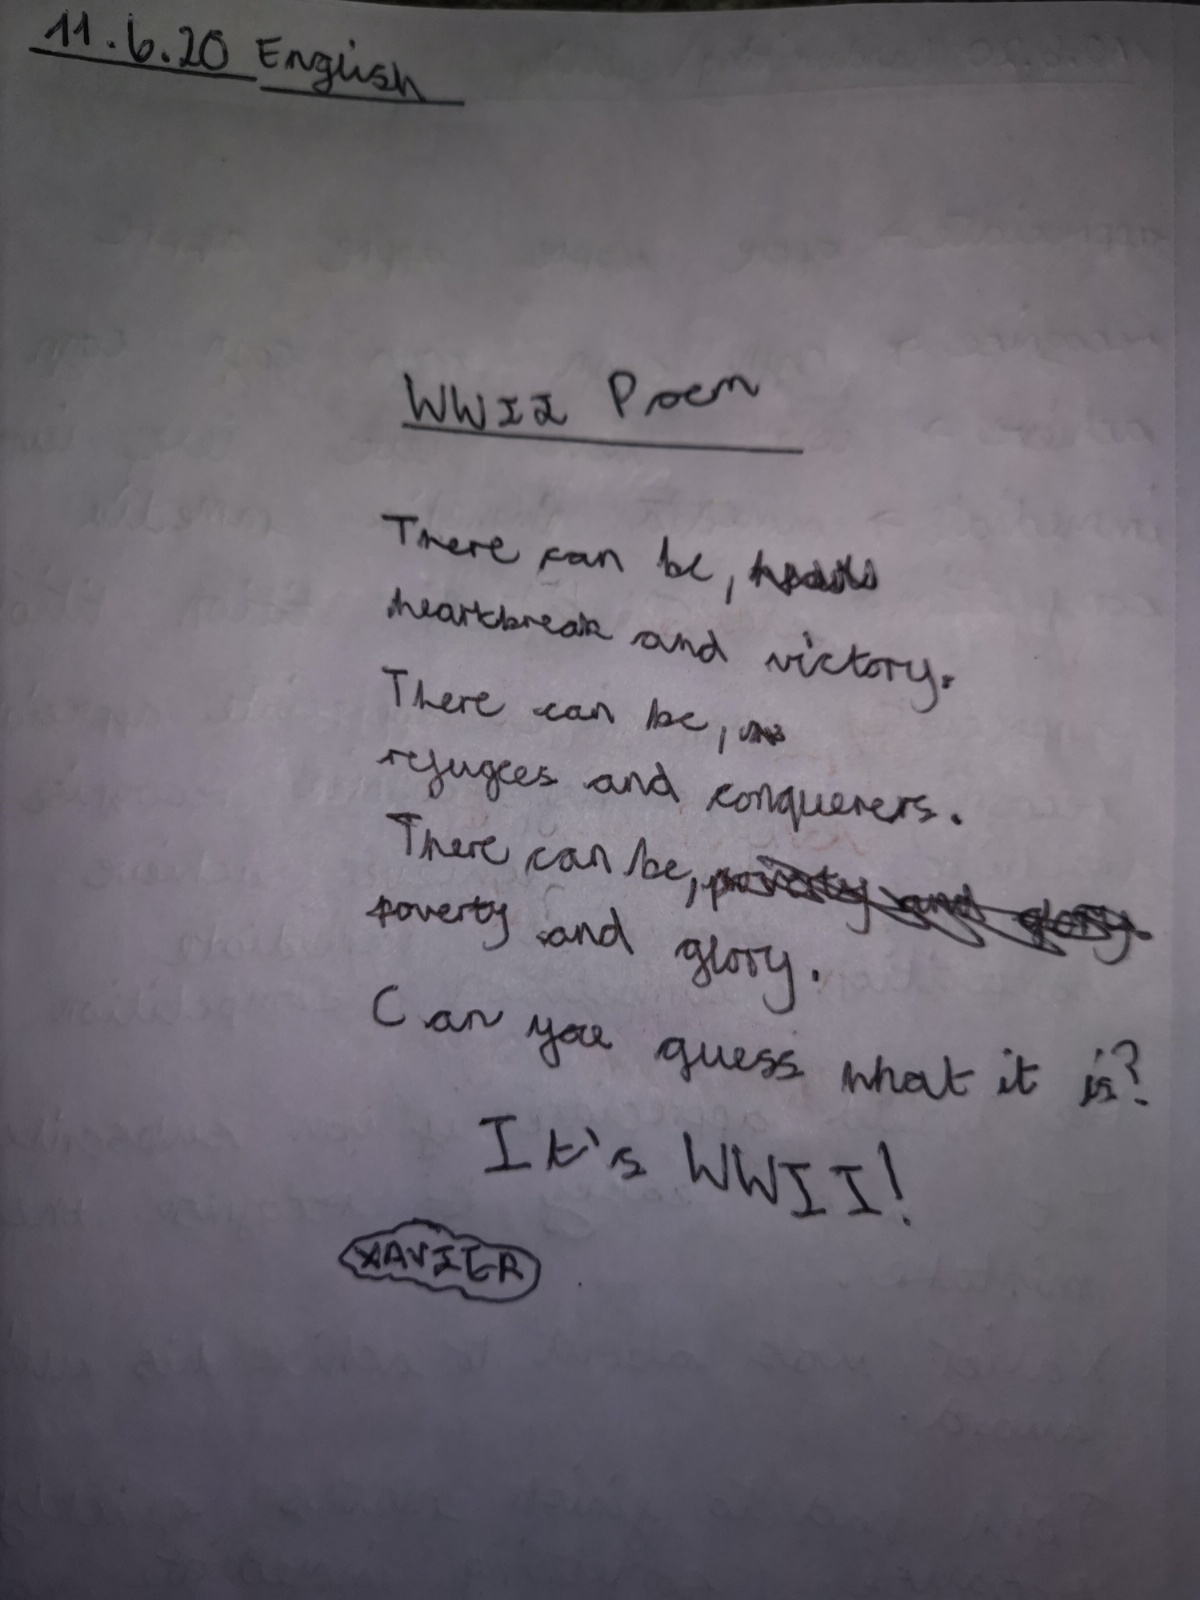 11.6.20 English
WWII Poem
There can be,
heartbreak and victory.
There can be,
refugees and conquerers.
There can be, poverty and glory.
poverty and glory.
Can you guess what it is?
It's WWII!
XAVIER